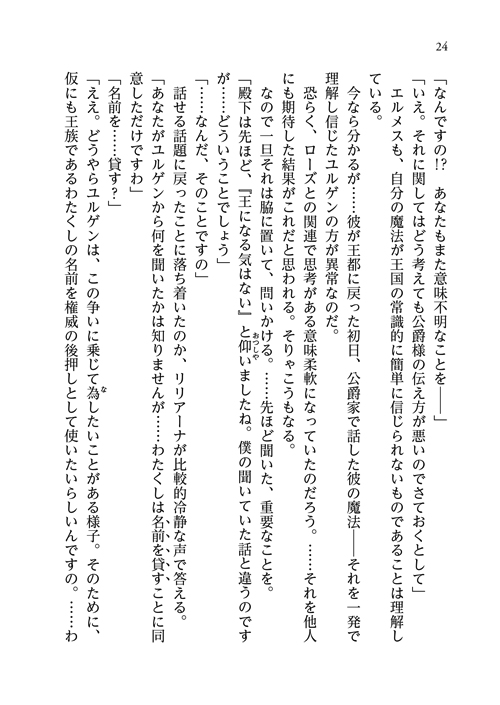 24
「なんですの!?　あなたもまた意味不明なことを――」
「いえ。それに関してはどう考えても公爵様の伝え方が悪いのでさておくとして」
　エルメスも、自分の魔法が王国の常識的に簡単に信じられないものであることは理解し
ている。
　今なら分かるが……彼が王都に戻った初日、公爵家で話した彼の魔法――それを一発で
理解し信じたユルゲンの方が異常なのだ。
　恐らく、ローズとの関連で思考がある意味柔軟になっていたのだろう。……それを他人
にも期待した結果がこれだと思われる。そりゃこうもなる。
　なので一旦それは脇に置いて、問いかける。……先ほど聞いた、重要なことを。
「殿下は先ほど、『王になる気はない』と仰いましたね。僕の聞いていた話と違うのです
が……どういうことでしょう」
「……なんだ、そのことですの」
　話せる話題に戻ったことに落ち着いたのか、リリアーナが比較的冷静な声で答える。
「あなたがユルゲンから何を聞いたかは知りませんが……わたくしは名前を貸すことに同
意しただけですわ」
「名前を……貸す?」
「ええ。どうやらユルゲンは、この争いに乗じて為したいことがある様子。そのために、
仮にも王族であるわたくしの名前を権威の後押しとして使いたいらしいんですの。……わ